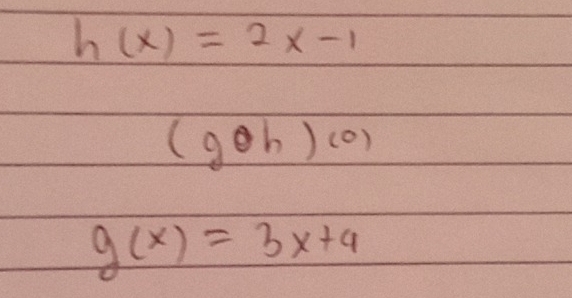 h(x) = 2x-1
(g∘h)(0)
g(x) = 3x+9